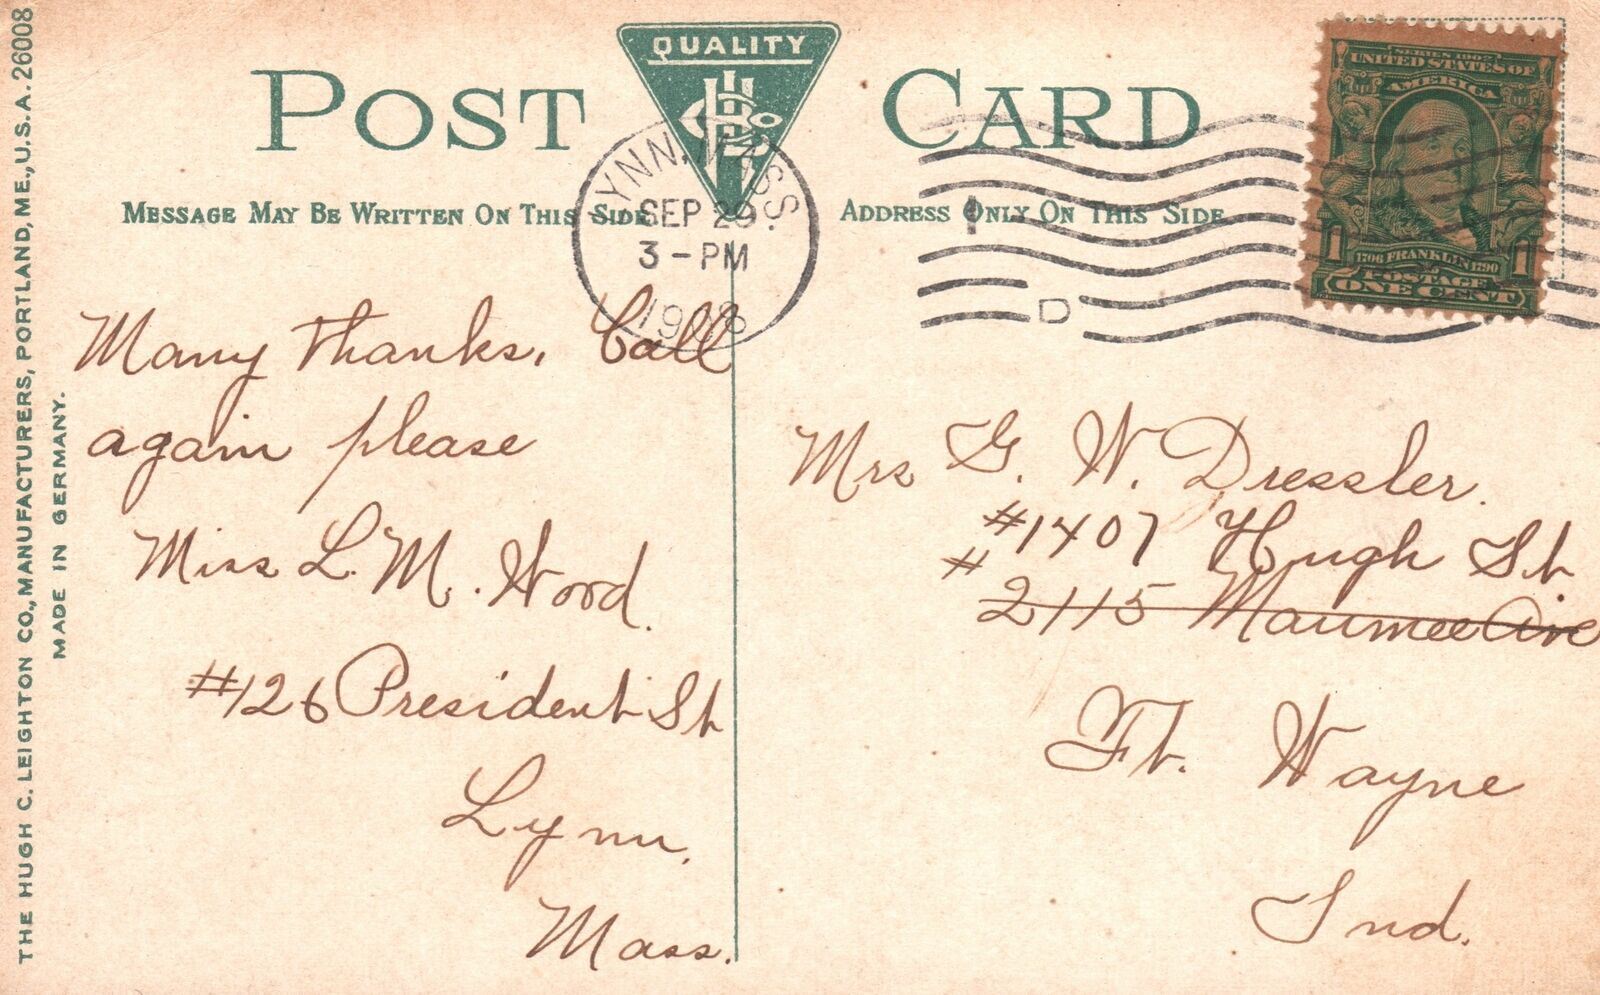 THE HUGH C. LEIGHTON CO., MANUFACTURERS, PORTLAND, ME., U.S.A. 26008
MADE IN GERMANY.
POST CARD
QUALITY
MESSAGE MAY BE WRITTEN ON THIS SIDE
ADDRESS ONLY ON THIS SIDE
LYNN, MASS.
SEP 29
3-PM
1908
D
SERIES 1902
UNITED STATES OF
AMERICA
1706 FRANKLIN 1790
1 POSTAGE 1
ONE CENT
Many Thanks, Call
again please
Miss L. M. Wood.
#126 President St
Lynn,
Mass.
Mrs G. W. Dressler.
#1407 Hugh St
# 2115 Maumee Ave
Ft. Wayne
Ind.